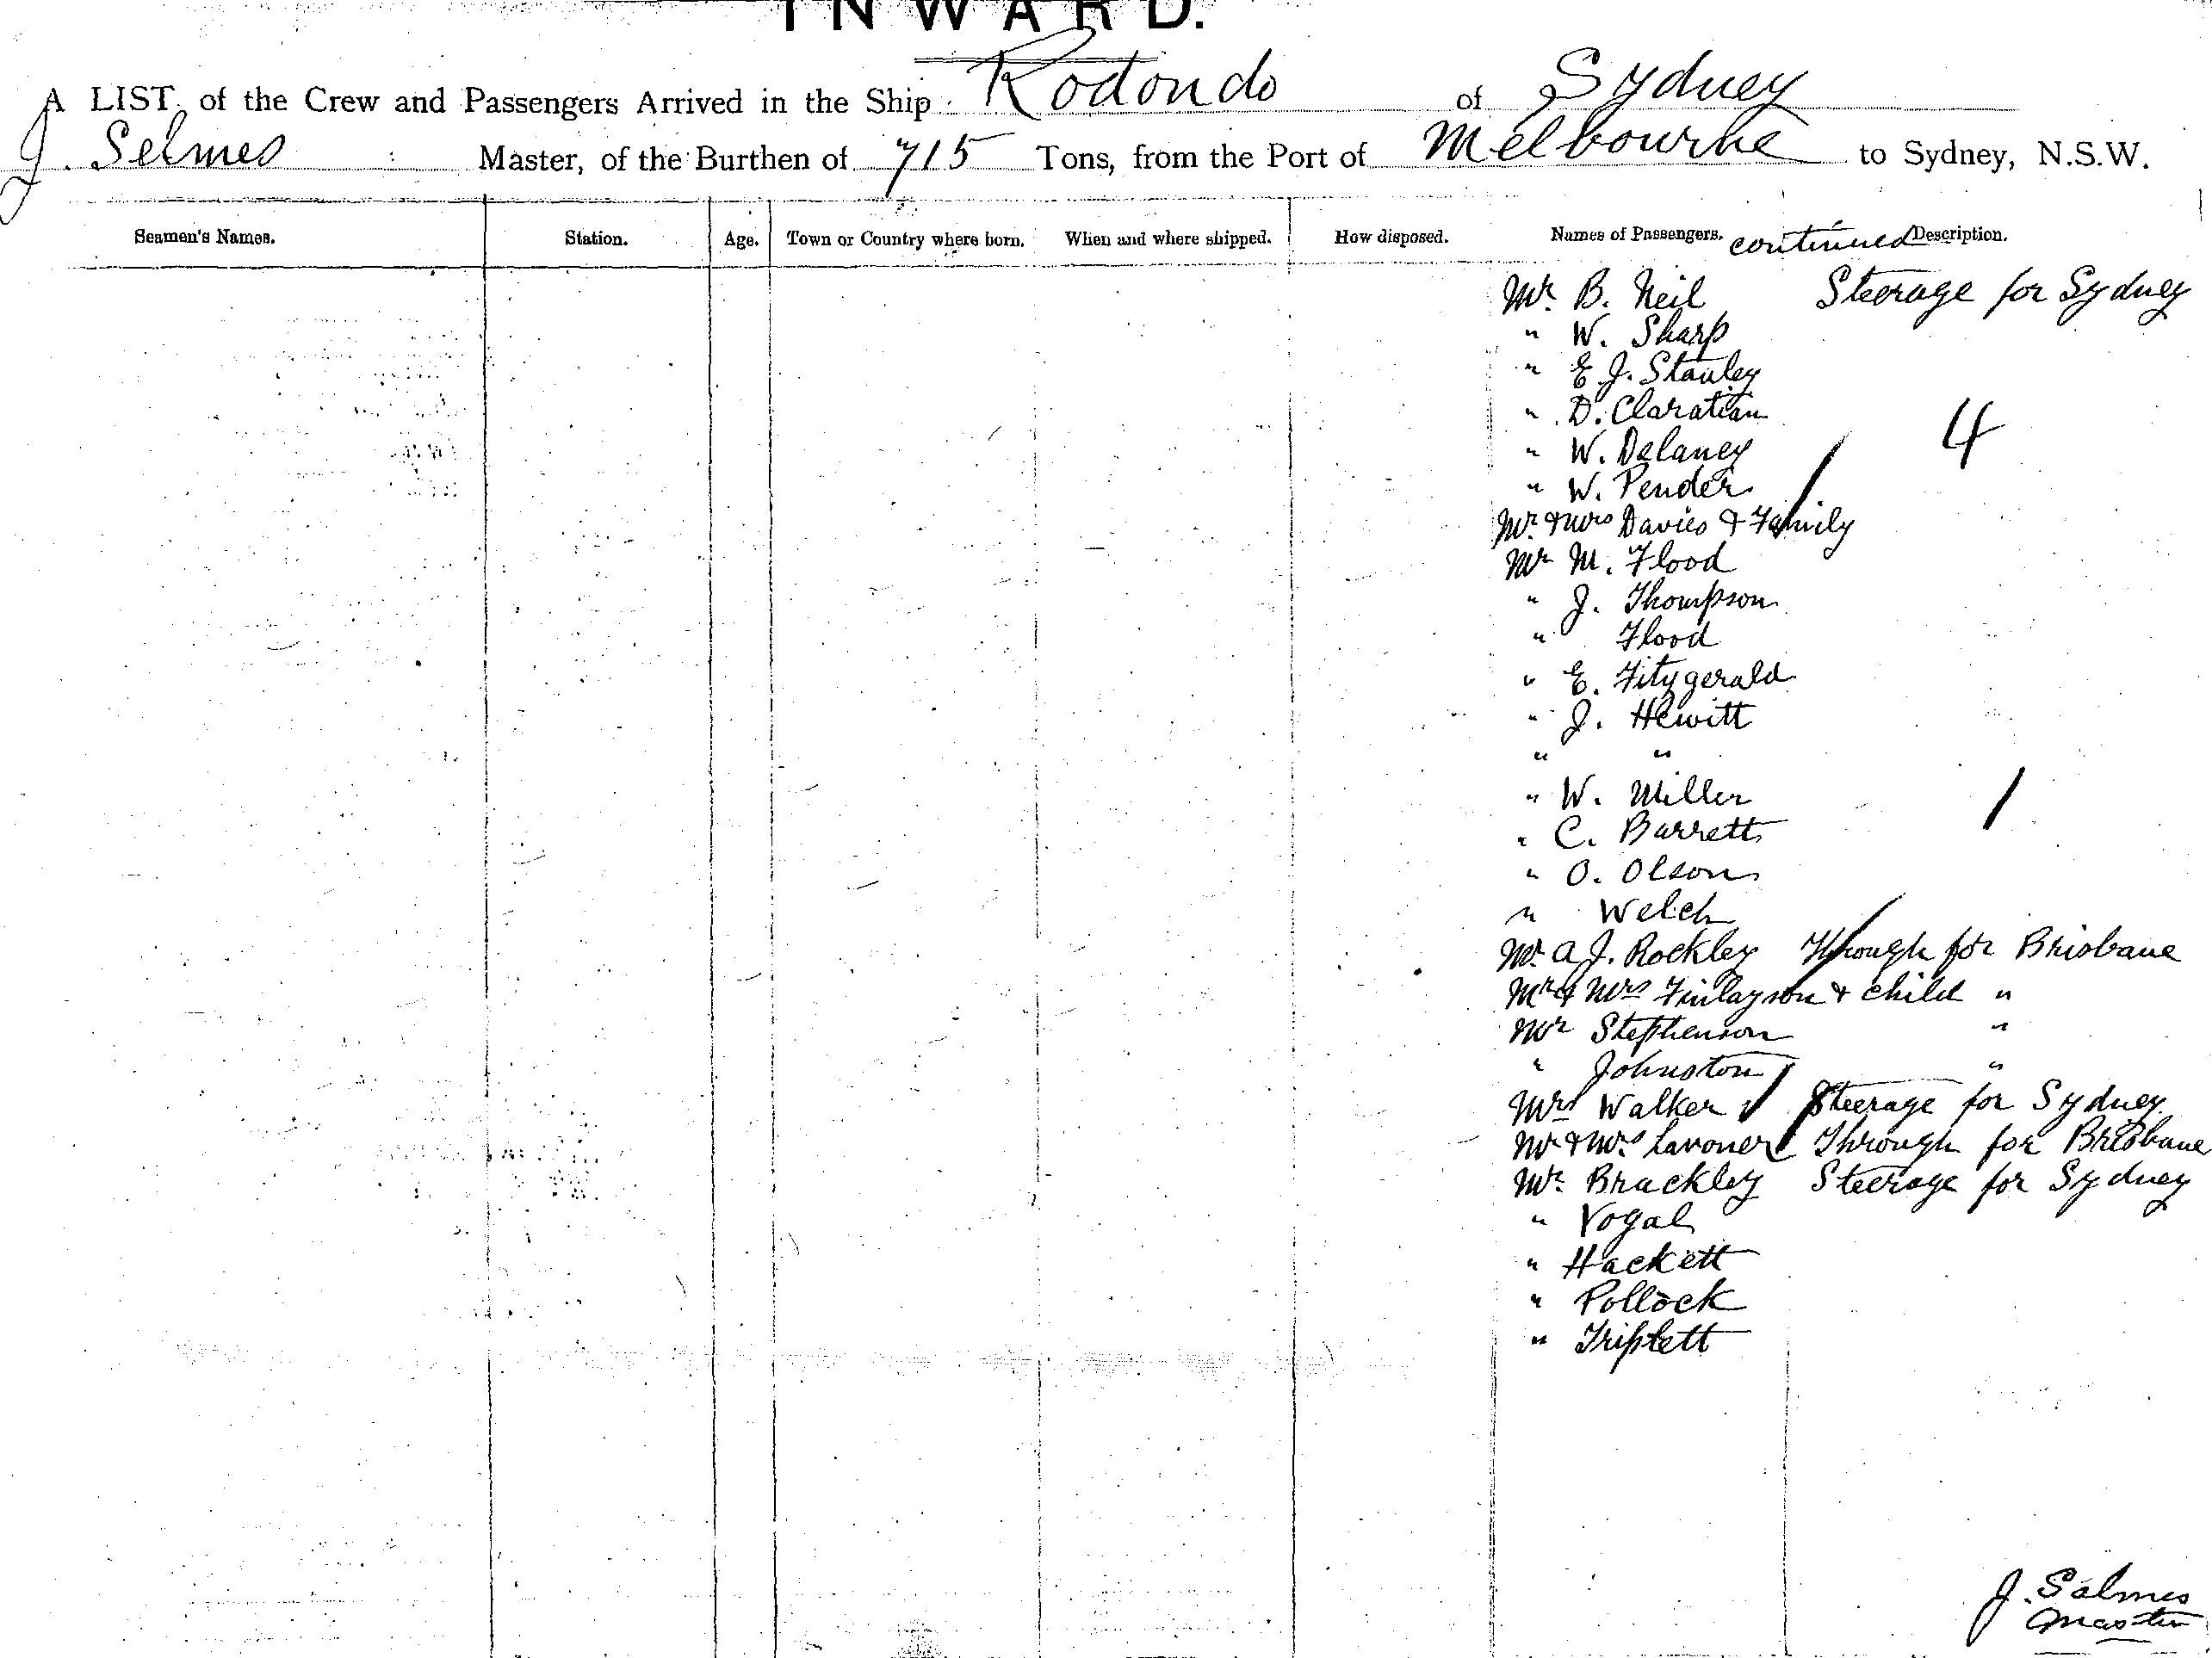 INWARD.
A LIST of the Crew and Passengers Arrived in the Ship Rodondo of Sydney
J. Selmes Master, of the Burthen of 715 Tons, from the Port of Melbourne to Sydney, N.S.W.
Seamen's Names. Station. Age. Town or Country where born. When and where shipped. How disposed. Names of Passengers. continued Description.
Mr. B. Neil Steerage for Sydney
" W. Sharp
" E J. Stanley
" D. Claratian
" W. Delaney 4
" W. Pender
Mr. & Mrs Davies & Family
Mr M. Flood
" J. Thompson
" Flood
" E. Fitzgerald
" J. Hewitt
" "
" W. Miller
" C. Barrett
" O. Olson
" Welch
Mr. A J. Rockley Through for Brisbane
Mr & Mrs Finlayson & child "
Mr Stephenson "
" Johnston "
Mrs Walker Steerage for Sydney
Mr & Mrs Lavoner Through for Brisbane
Mr. Brackley Steerage for Sydney
" Vogal
" Hackett
" Pollock
" Triplett
J. Selmes
Master